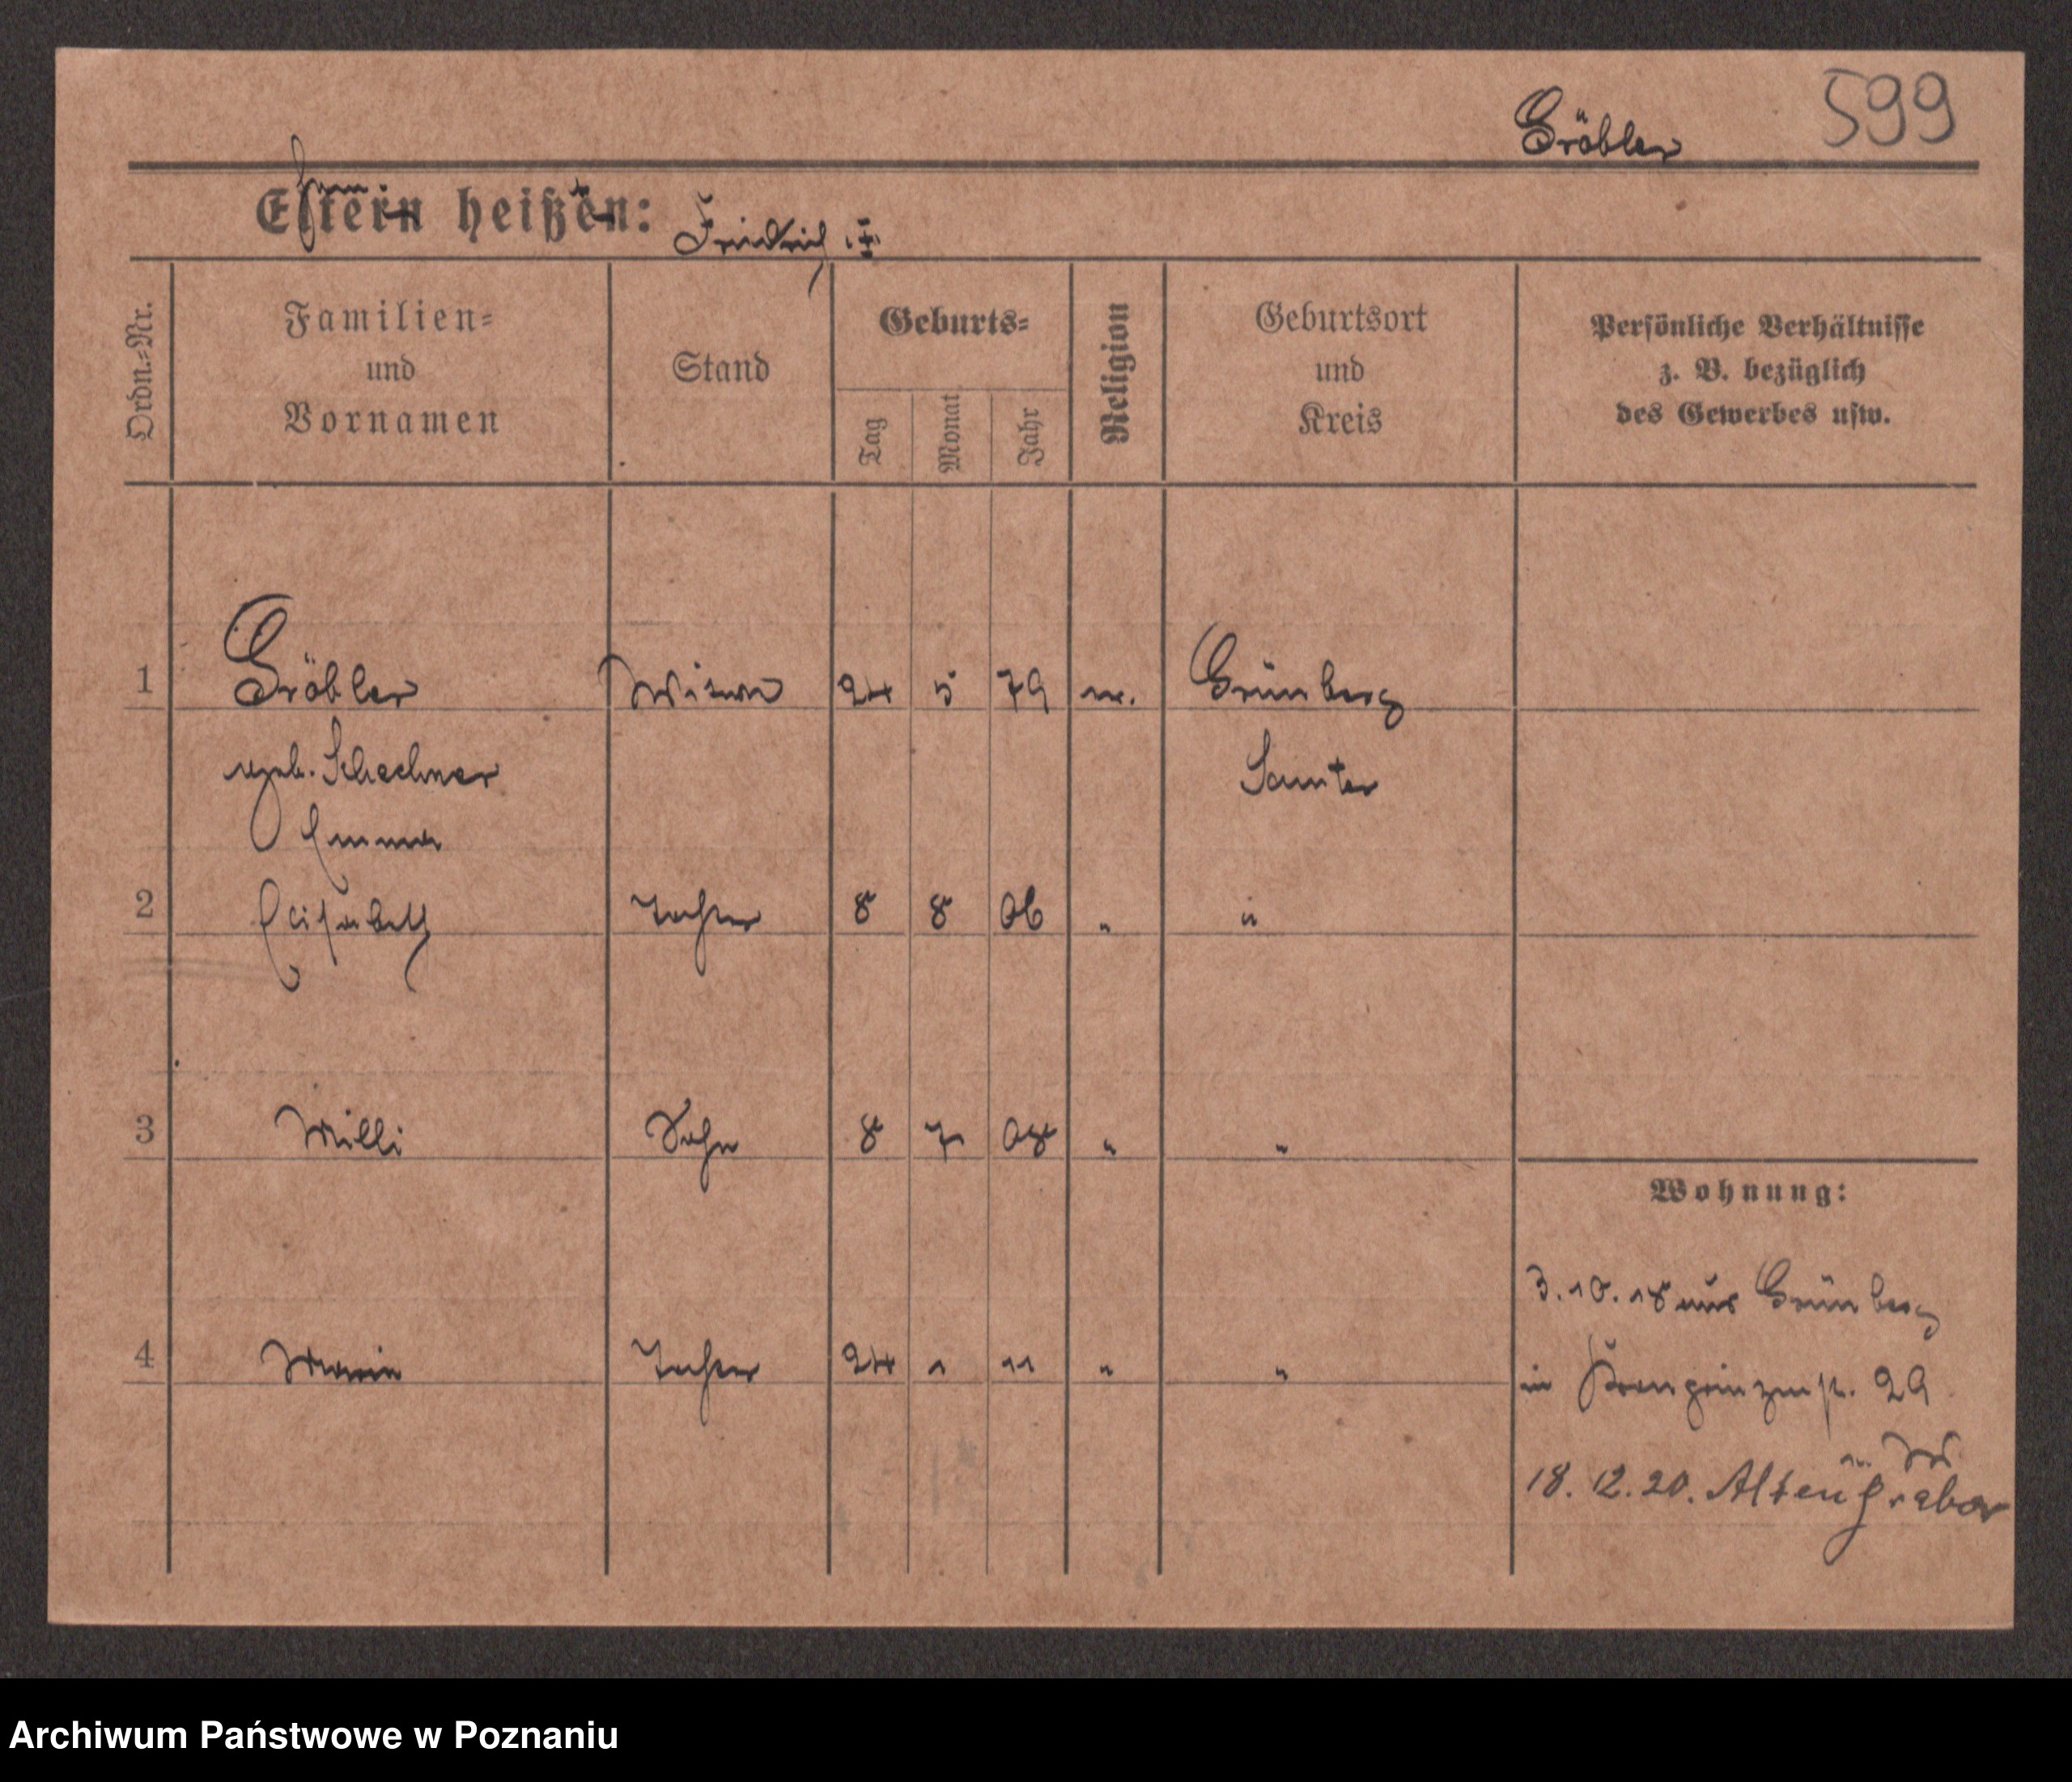 599
Gröbler
Eltern heißen: Friedrich
Ordn.=Nr.
Familien=
und
Vornamen
Stand
Geburts=
Tag
Monat
Jahr
Religion
Geburtsort
und
Kreis
Persönliche Verhältnisse
z. B. bezüglich
des Gewerbes usw.
1 Gröbler Witwe 24 5 79 ev. Grünberg
geb. Schechner Samter
Emma
2 Elisabeth Tochter 8 8 06 " "
3 Willi Sohn 8 7 08 " "
Wohnung:
3.10.18 aus Grünberg
4 Marie Tochter 24 1 11 " "
in Kronprinzenstr. 29
18.12.20. Altengrabow
Archiwum Państwowe w Poznaniu